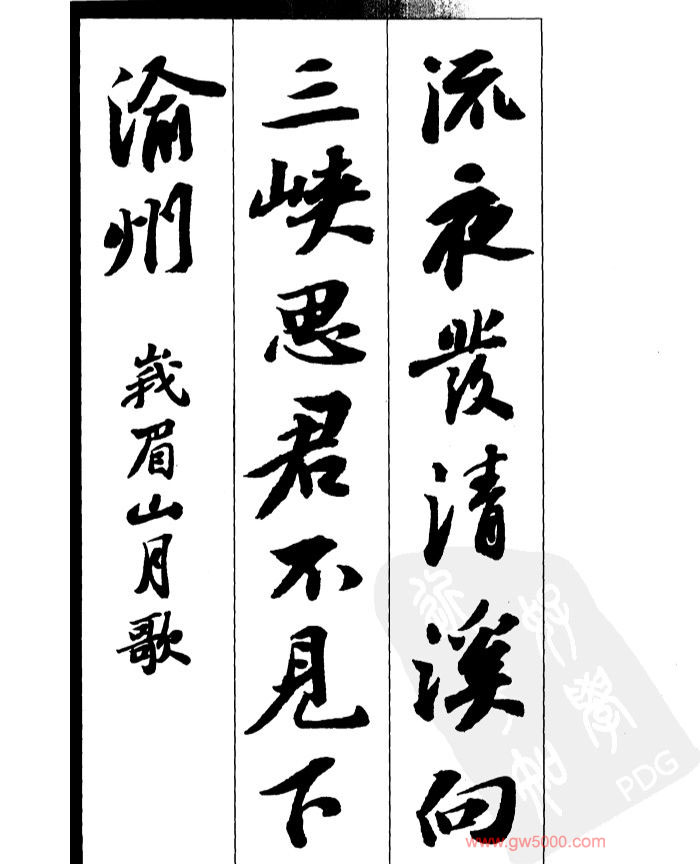 流夜發清溪向
三峽思君不見下
渝州
峩眉山月歌
PDG
www.gw5000.com